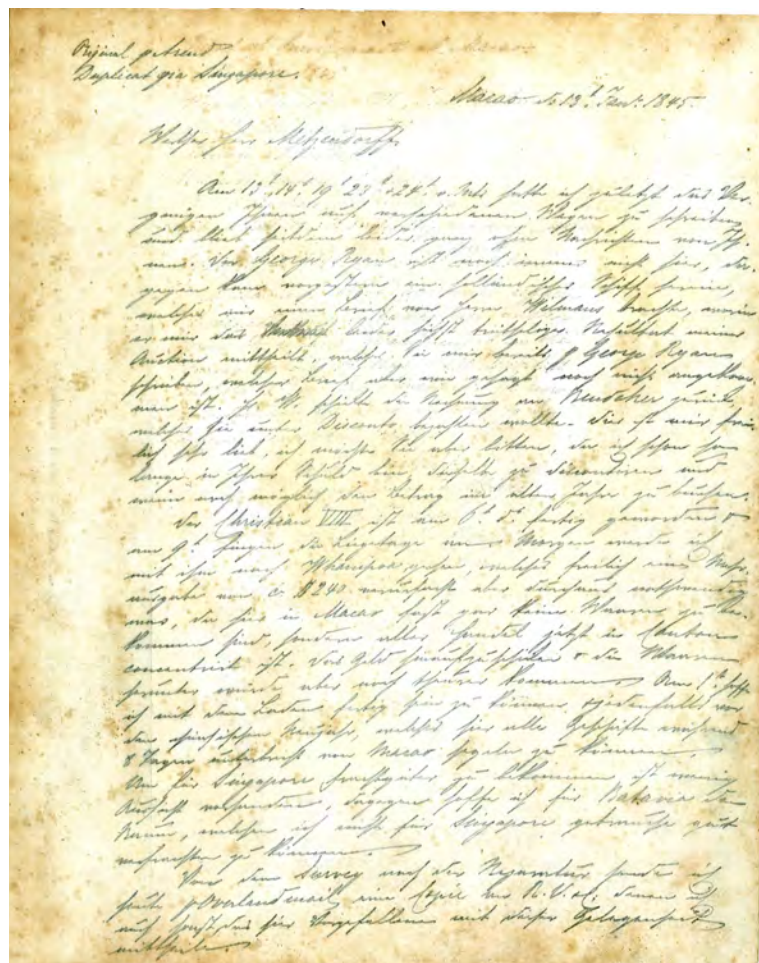 Original p Arend
Duplicat via Singapore.
Macao d. 13t Janr. 1845.
Werther Herr Metzendorff,
Am 13t, 14t, 19t, 23t & 24t v. Mts hatte ich zuletzt das Ver-
gnügen Ihnen auf verschiedenen Wegen zu schreiben
und blieb seitdem leider ganz ohne Nachrichten von Ih-
nen. Der George Ryan ist noch immer nicht hier, da-
gegen kam vorgestern ein holländisches Schiff herein,
welches mir einen Brief von Herrn Wilmans brachte, worin
er mir das leider höchst Resultat meiner
Auction mittheilt, welches Sie mir bereits p George Ryan
schreiben, welcher Brief aber wie gesagt noch nicht angekom-
men ist. Hr W. schickte die Rechnung an zurück
welche Sie unter Disconto bezahlen wollte. Dies ist mir frei-
lich sehr lieb, ich möchte Sie aber bitten, da ich schon so
lange in Ihrer Schuld bin, dieselbe zu discontiren und
wenn noch möglich den Betrag im alten Jahre zu buchen.
Der Christian VIII ist am 6t ds fertig geworden &
am 9t fingen die Liegetage an. Morgen werde ich
mit ihm nach Whampoa gehen, welches freilich eine Mehr-
ausgabe von ca $240 verursacht aber durchaus nothwendig
war, da hier in Macao fast gar keine Waaren zu be-
kommen sind, sondern aller Handel jetzt in Canton
concentrirt ist. Das Geld hinaufzuschicken & die Waaren
herunter würde aber noch theurer kommen. Am hoffe
ich mit dem Laden fertig sein zu können & jedenfalls vor
dem chinesischen Neujahr, welches hier alle Geschäfte während
8 Tagen unterbricht von Macao segeln zu können.
Um für Singapore Frachtgüter zu bekommen, ist wenig
Aussicht vorhanden, dagegen hoffe ich für Batavia den
Raum, welchen ich nicht für Singapore gebrauche gut
verfrachten zu können.
Von dem Survey nach der Reparatur sende ich
heute p Overlandmail eine Copie an denen ich
auch sonst das hier Vorgefallene mit dieser Gelegenheit
mittheile.